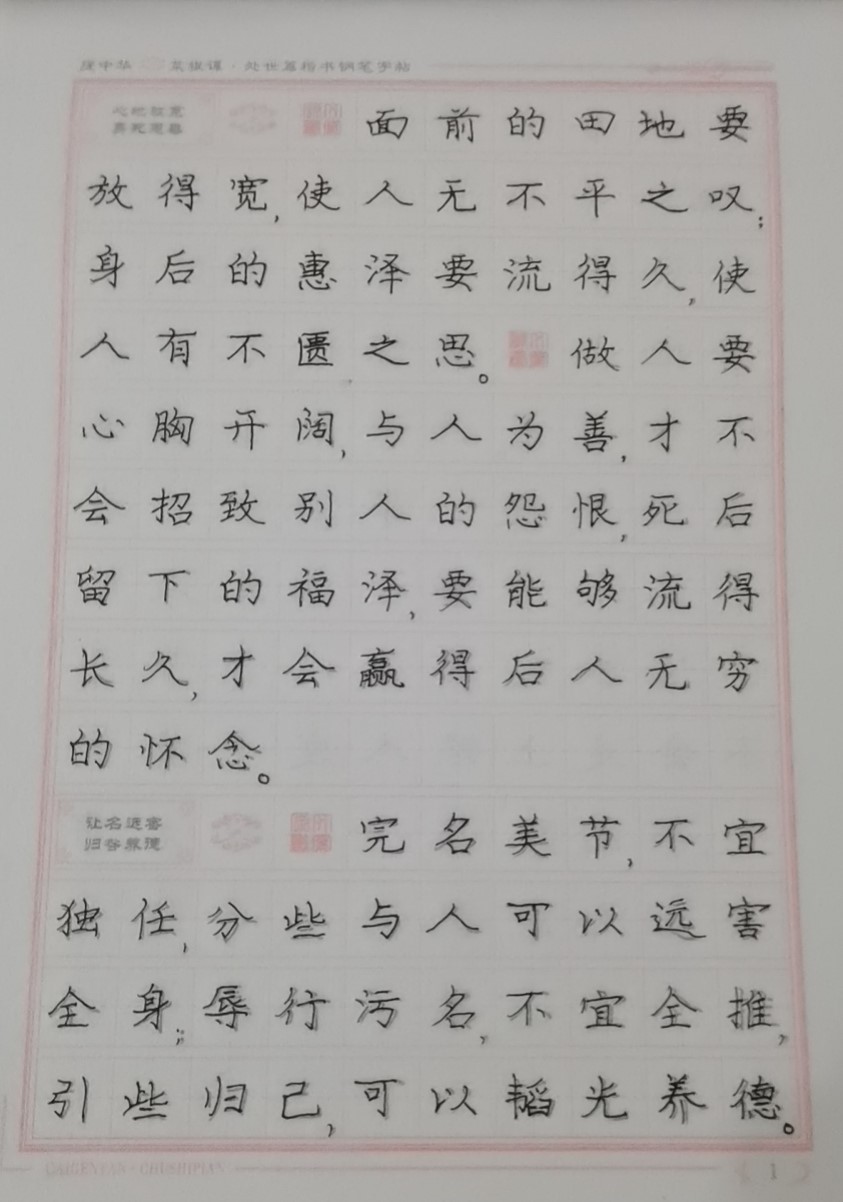 庞中华·菜根谭·处世篇楷书钢笔字帖
心地放宽
恩泽流长
面前的田地要
放得宽,使人无不平之叹;
身后的惠泽要流得久,使
人有不匮之思。做人要
心胸开阔,与人为善,才不
会招致别人的怨恨,死后
留下的福泽,要能够流得
长久,才会赢得后人无穷
的怀念。
让名远害
归咎养德
完名美节,不宜
独任,分些与人可以远害
全身;辱行污名,不宜全推,
引些归己,可以韬光养德。
CAIGENTAN·CHUSHIPIAN
1